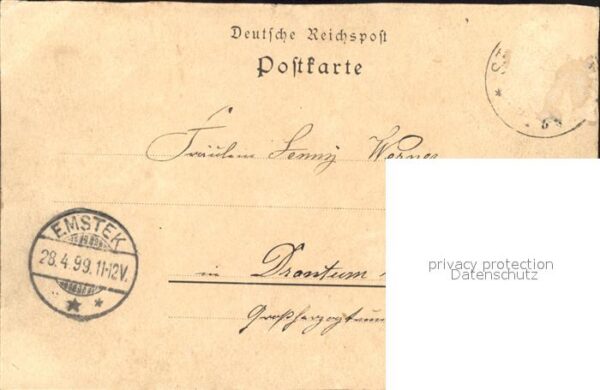 Deutsche Reichspost
Postkarte
Fräulein Jenny Werner
EMSTEK
28.4.99.11-12V.
in Drantum
Großherzogtum
privacy protection
Datenschutz